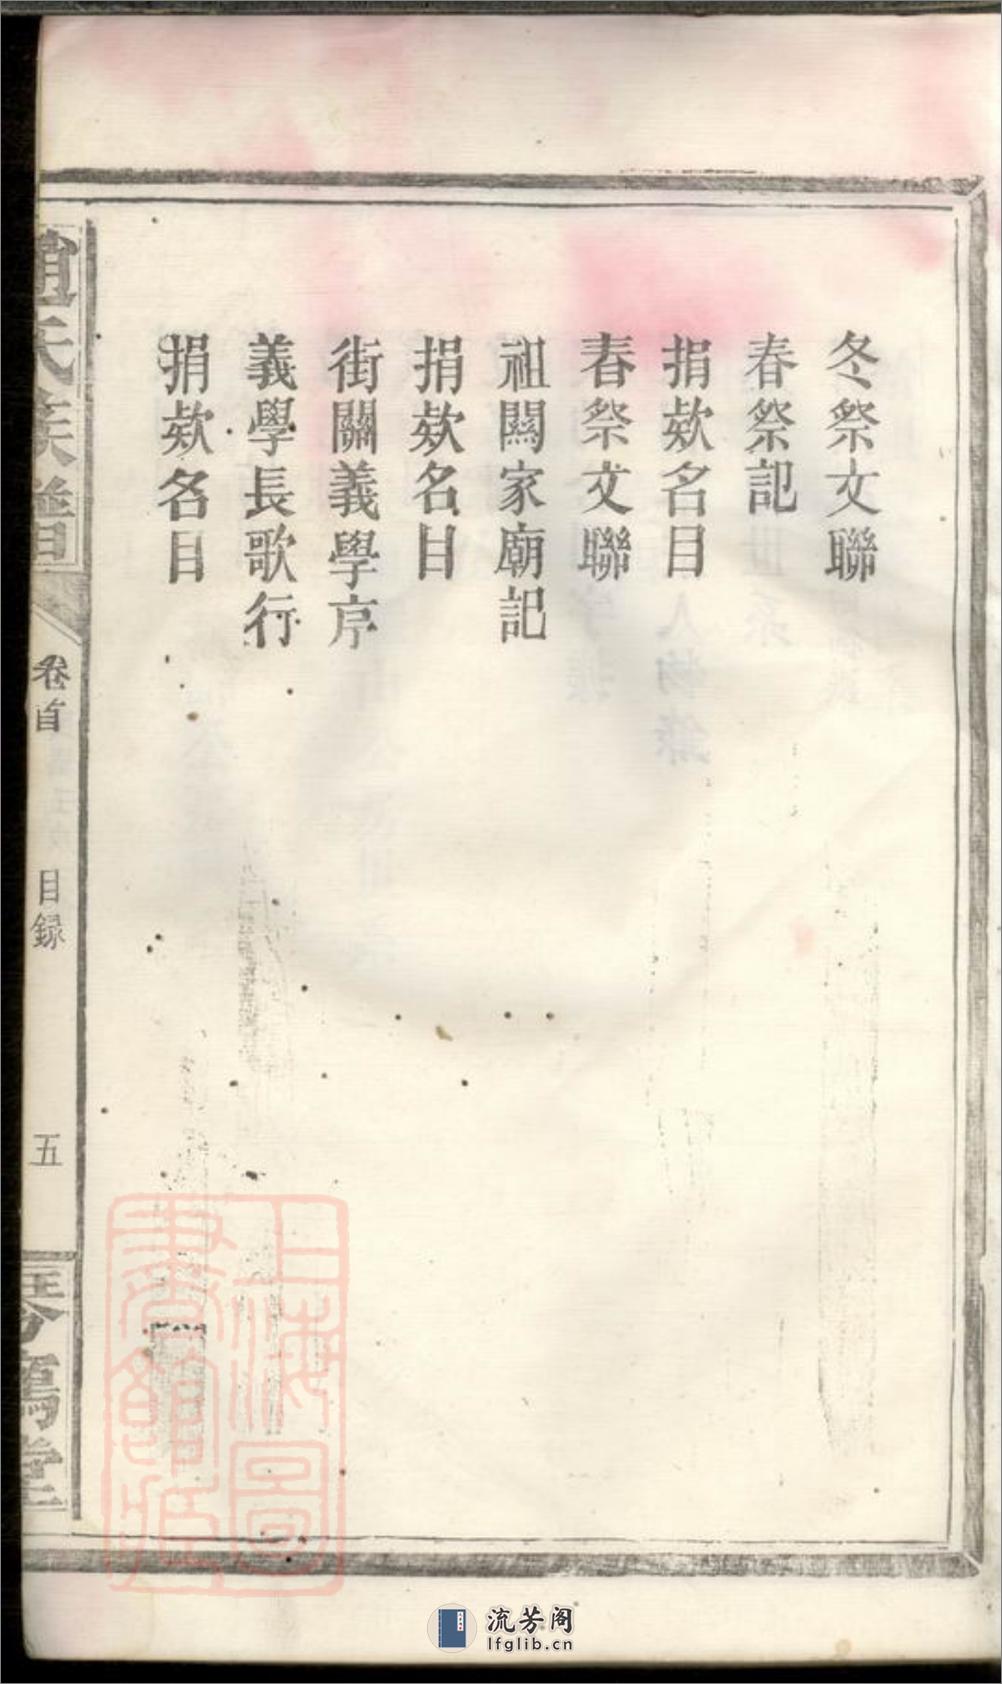 冬祭文聯
春祭記
捐欵名目
春祭文聯
祖闗家廟記
捐欵名目
街關義學序
義學長歌行
捐欵名目
趙氏族譜
卷首
目錄
五
琴鶴堂
上海圖
書館藏
流芳阁
lfglib.cn